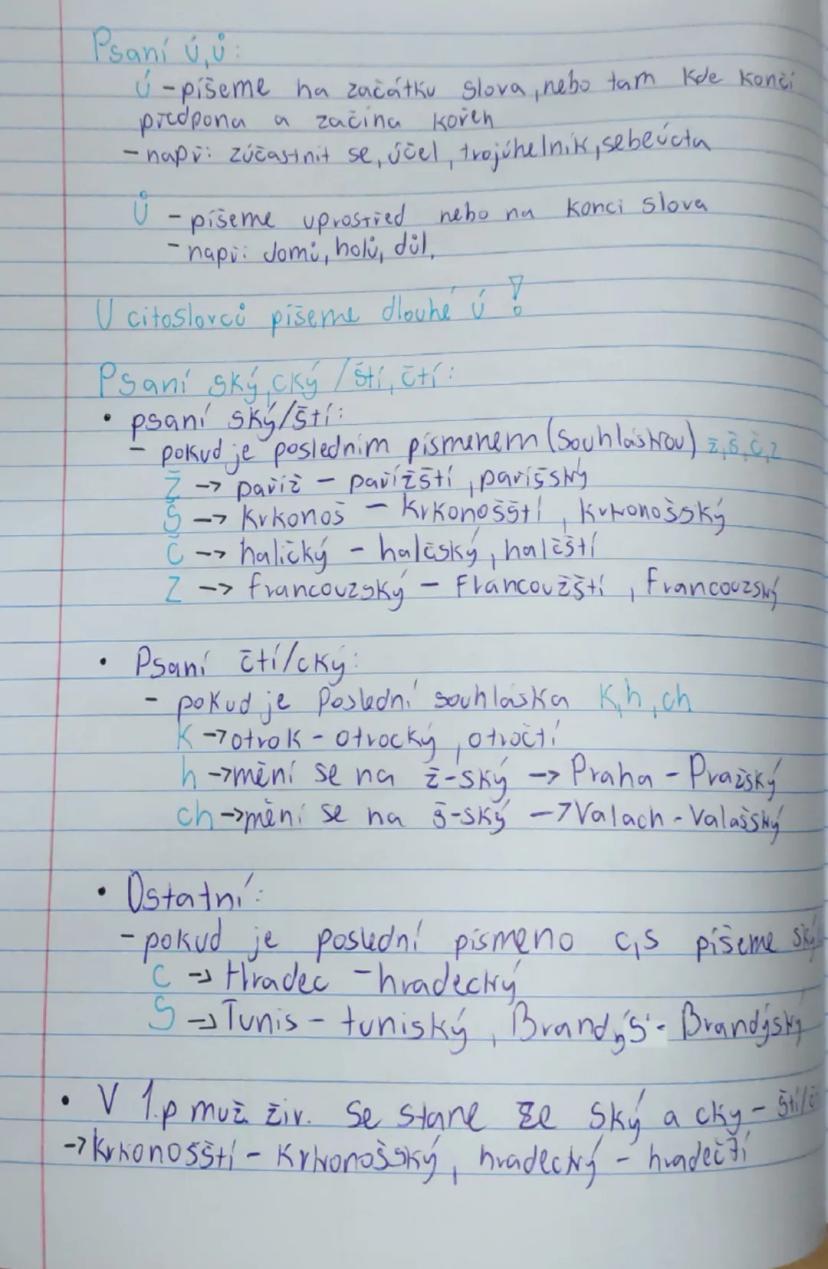 Psaní ú,ů:
ú - píšeme na začátku slova, nebo tam kde končí
předpona a začína kořen
- např: zúčastnit se, účel, trojúhelník, sebeúcta
ů - píšeme uprostřed nebo na konci slova
- např: domů, holů, důl,
U citoslovců píšeme dlouhé ú !
Psaní ský,cký /ští,čtí:
• psaní ský/ští:
- pokud je poslednim písmenem (souhláskou) ž,š,č,z
Ž -> paříž - pařížští, parišský
Š -> Krkonoš - Krkonošští, krkonošský
Č -> haličký - haličský, haličští
Z -> francouzský - Francoužští, Francouzský
• Psaní čtí/cký:
- pokud je poslední souhláska k,h,ch
K -> otrok - otrocký, otročtí
h -> mění se na ž-ský -> Praha - Pražský
ch -> mění se na š-ský -> Valach - Valašský
• Ostatní:
- pokud je poslední písmeno c,s píšeme ský
C -> Hradec - hradecký
S -> Tunis - tuniský, Brandýs - Brandýský
• V 1.p muž. živ. se stane ze ský a cky - ští/
-> Krkonošští - Krkonošský, hradecký - hradečtí